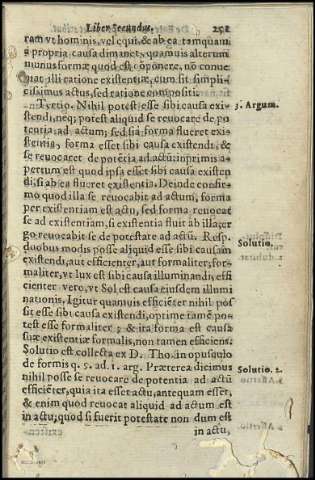 Liber Secundus. 251
ram vt hominis, vel equi, & ab ea tamquam
a propria causa dimanet, quamuis alterum
munus formæ quod est cōponere, nō conue
niat illi ratione existentiæ, cum sit simpli-
cissimus actus, sed ratione compositi.
Tertio. Nihil potest esse sibi causa exi-
stendi, neq; potest aliquid se reuocare de po
tentia, ad actum; sed si a forma flueret exi-
stentia, forma esset sibi causa existendi, &
se reuocaret de potētia ad actū: inprimis a-
pertum est quod ipsa esset sibi causa existen
di, si ab ea flueret existentia. Deinde confir-
mo quod illa se reuocabit ad actum, forma
per existentiam est actu, sed forma reuocat
se ad existentiam, si existentia fluit ab illa, er
go reuocabit se de potestate ad actū. Resp.
duobus modis posse aliquid esse sibi causam
existendi, aut efficienter, aut formaliter, for-
maliter, vt lux est sibi causa illuminandi, effi
cienter vero, vt Sol est causa eiusdem illumi
nationis, Igitur quamuis efficiēter nihil pos
sit esse sibi causa existendi, optime tamē po-
test esse formaliter; & ita forma est causa
suæ existentiæ formalis, non tamen efficiens.
Solutio est collecta ex D. Tho. in opusculo
de formis q. 5. ad. 1. arg. Præterea dicimus
nihil posse se reuocare de potentia ad actū
efficiēter, quia ita esset actu, antequam esset,
& enim quod reuocat aliquid ad actum est
in actu, quod si fuerit potestate non dum est
in actu,
3. Argum.
Solutio.
Solutio. 2.